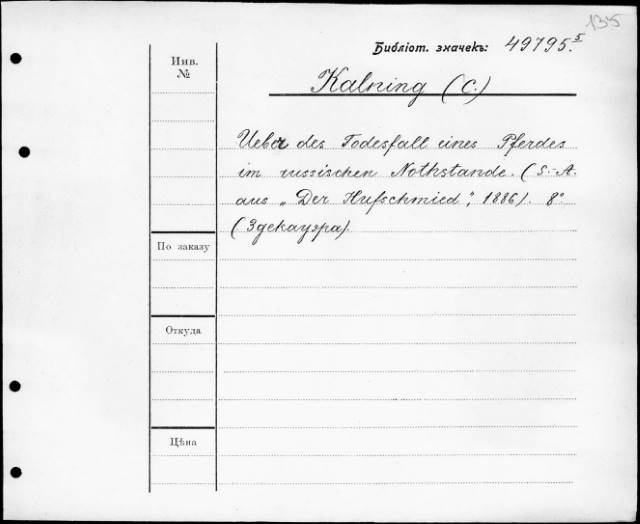 135
Библіот. значекъ: 49795.5
Инв.
№
Kalning (C.)
Ueber des Todesfall eines Pferdes
im russischen Nothstande. (S.-A.
aus „Der Hufschmied", 1886). 8°
(Здекауэра).
По заказу
Откуда
Цѣна